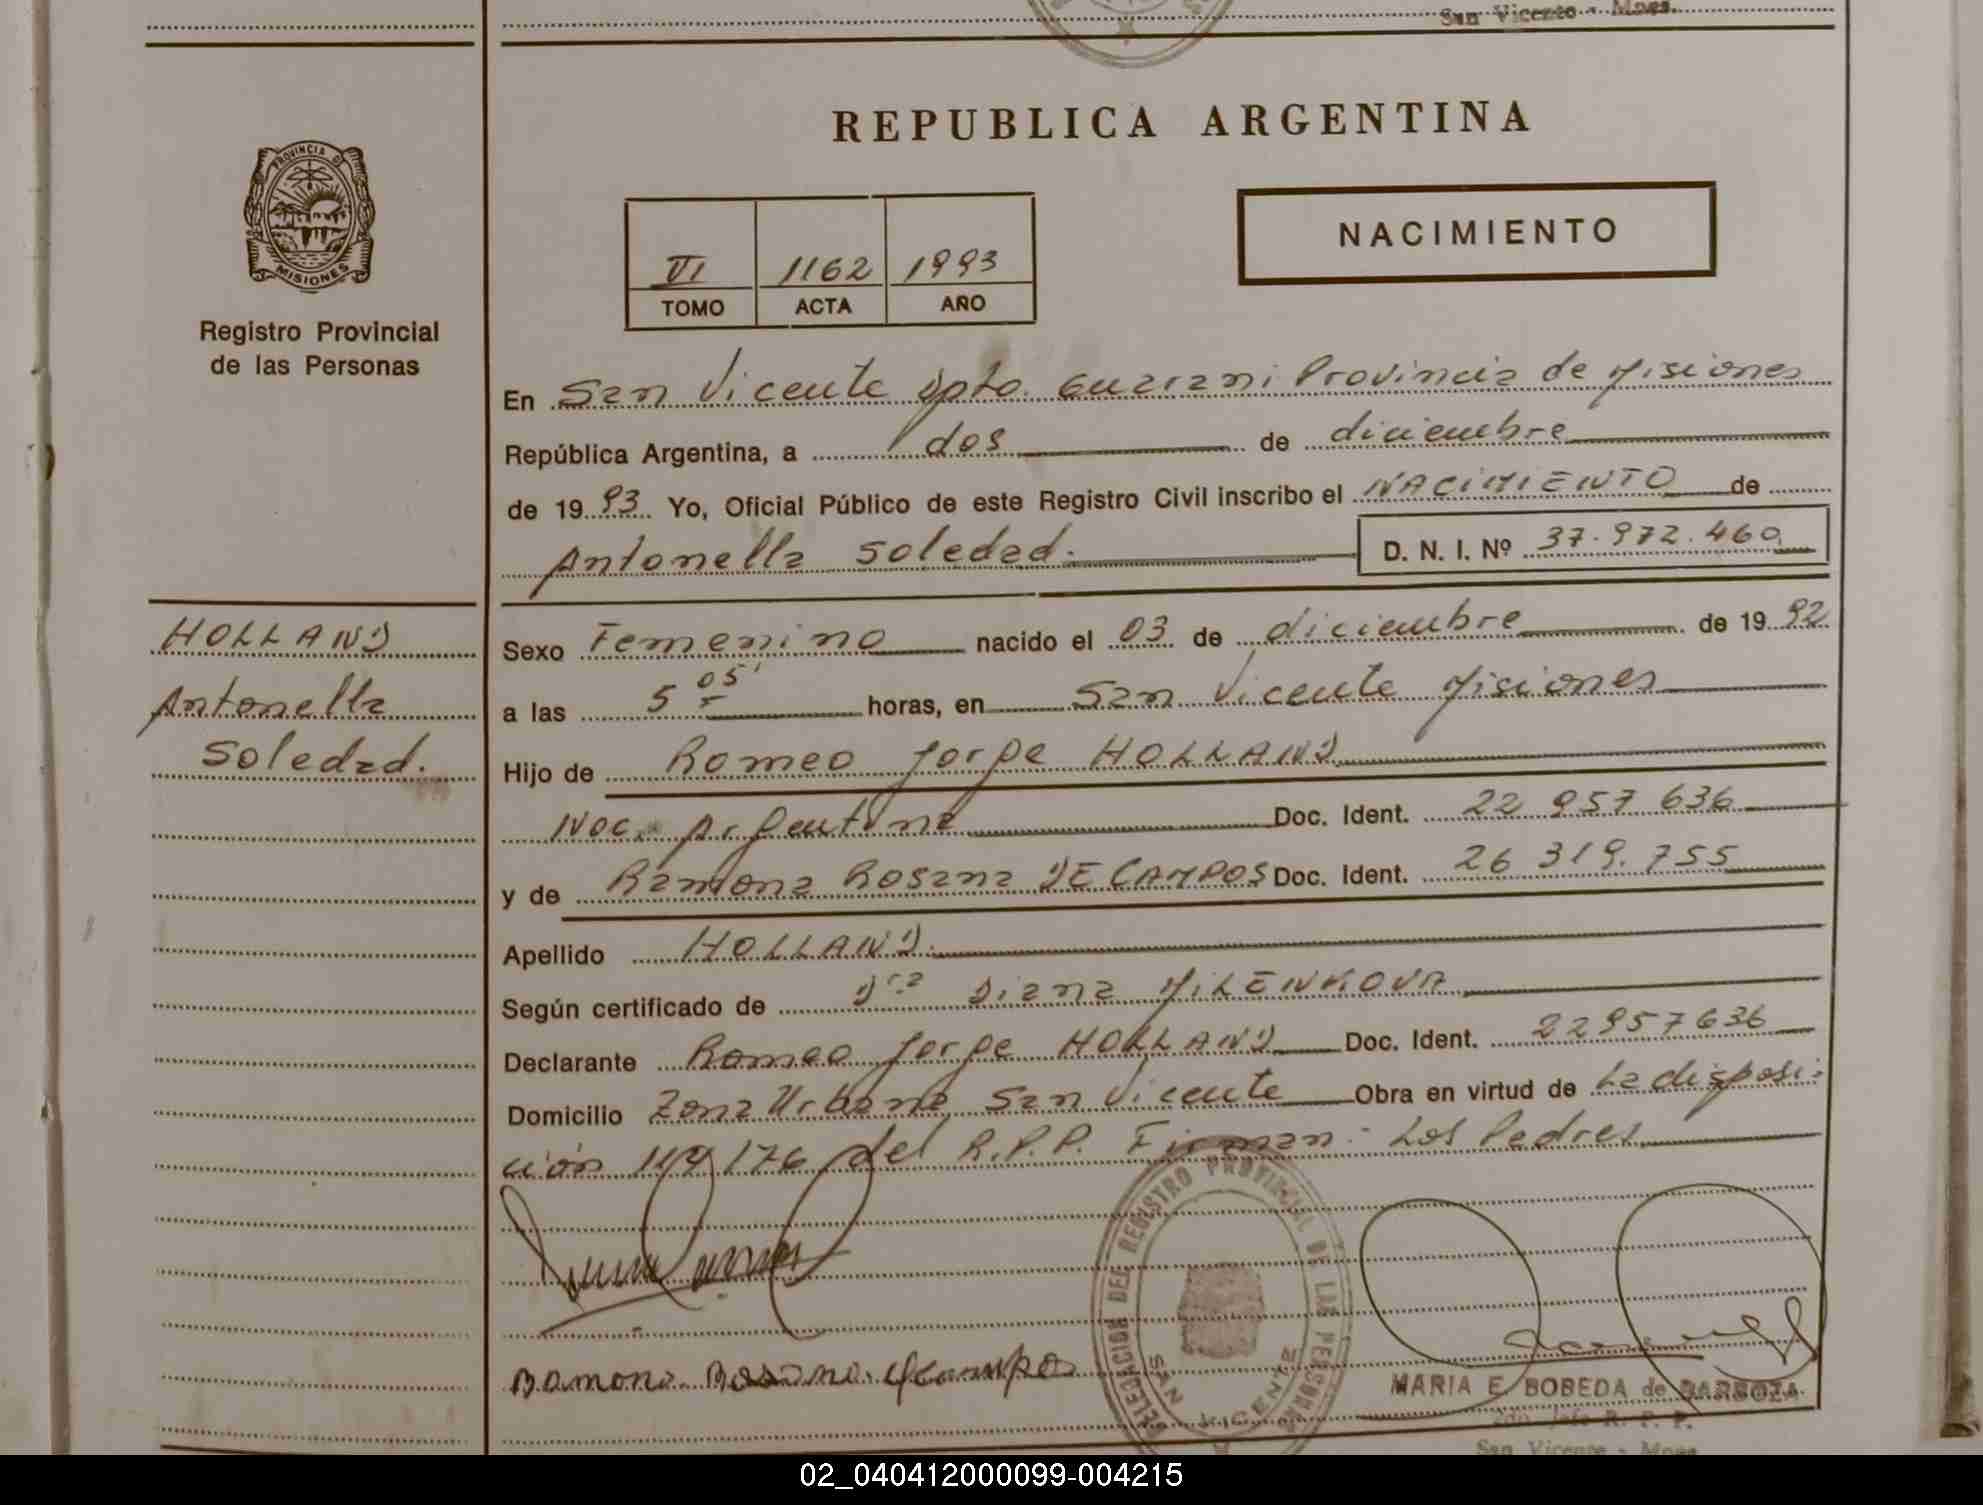 San Vicente - Mnes.
REPUBLICA ARGENTINA
PROVINCIA DE
MISIONES
Registro Provincial
de las Personas
VI 1162 1993
TOMO ACTA AÑO
NACIMIENTO
En San Vicente Dpto. Guarani Provincia de Misiones
República Argentina, a dos de diciembre
de 1993 Yo, Oficial Público de este Registro Civil inscribo el NACIMIENTO de
Antonella Soledad. D. N. I. Nº 37.972.460
HOLLAND
Antonella
Soledad.
Sexo Femenino nacido el 03 de diciembre de 1992
a las 5 05' horas, en San Vicente Misiones
Hijo de Romeo Jorge HOLLAND
Nac. Argentina Doc. Ident. 22 957 636
y de Ramona Rosana DE CAMPOS Doc. Ident. 26 319.755
Apellido HOLLAND.
Según certificado de Dra Diana MILENKOVA
Declarante Romeo Jorge HOLLAND Doc. Ident. 22957636
Domicilio Zona Urbana San Vicente Obra en virtud de La disposi-
ción 114/176 del R.P.P. Firman: Los Padres
DELEGACION DEL REGISTRO PROVINCIAL DE LAS PERSONAS
SAN VICENTE
Ramona Rosana
MARIA E. BOBEDA de BARBOZA
2do. Jefe R. P. P.
San Vicente - Mnes
02_040412000099-004215